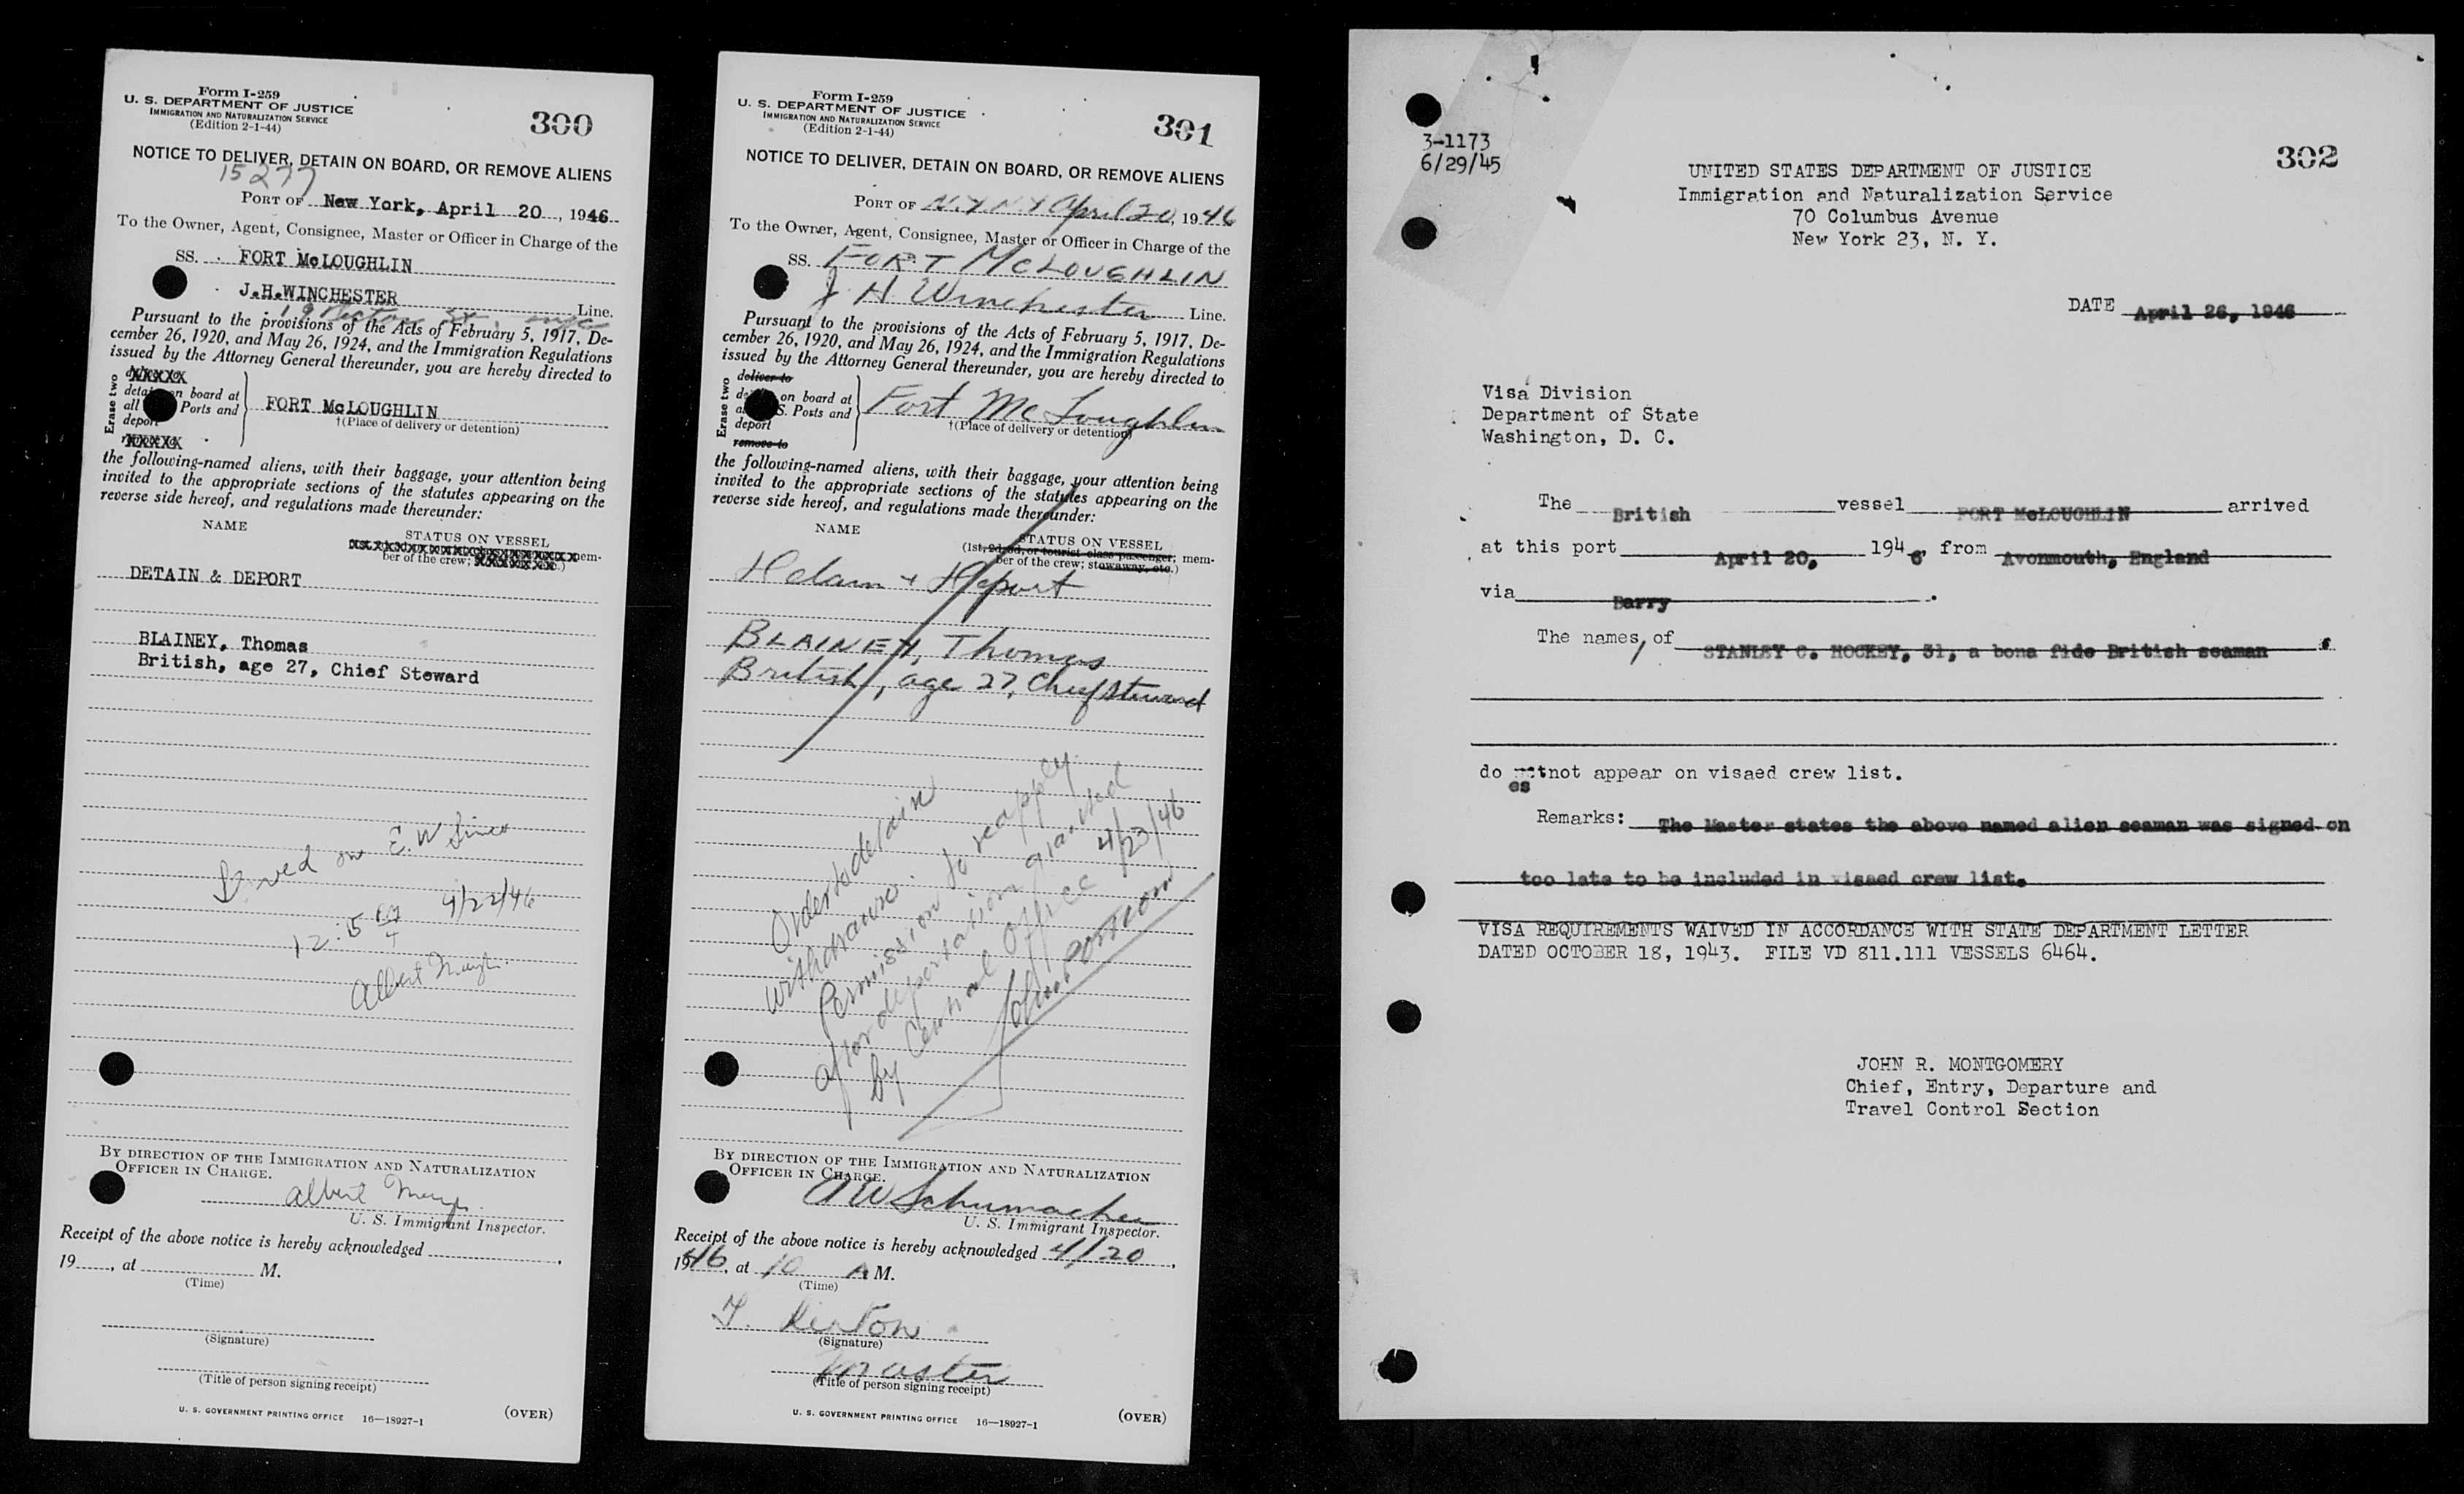 Form I-259
U. S. DEPARTMENT OF JUSTICE
IMMIGRATION AND NATURALIZATION SERVICE
(Edition 2-1-44)
300
NOTICE TO DELIVER, DETAIN ON BOARD, OR REMOVE ALIENS
15277
PORT OF New York, April 20, 1946
To the Owner, Agent, Consignee, Master or Officer in Charge of the
SS. FORT McLOUGHLIN
J.H.WINCHESTER Line.
19 Rector St. NYC
Pursuant to the provisions of the Acts of February 5, 1917, De-
cember 26, 1920, and May 26, 1924, and the Immigration Regulations
issued by the Attorney General thereunder, you are hereby directed to
Erase two
XXXXX
detain on board at
all Ports and
deport
XXXXX
FORT McLOUGHLIN
†(Place of delivery or detention)
the following-named aliens, with their baggage, your attention being
invited to the appropriate sections of the statutes appearing on the
reverse side hereof, and regulations made thereunder:
NAME
STATUS ON VESSEL
mem-
ber of the crew; .)
DETAIN & DEPORT
BLAINEY, Thomas
British, age 27, Chief Steward
Served on E. W.
12:15 4/22/46
Albert
BY DIRECTION OF THE IMMIGRATION AND NATURALIZATION
OFFICER IN CHARGE.
Albert
U. S. Immigrant Inspector.
Receipt of the above notice is hereby acknowledged ,
19 , at M.
(Time)
(Signature)
(Title of person signing receipt)
U. S. GOVERNMENT PRINTING OFFICE 16—18927-1
(OVER)
Form I-259
U. S. DEPARTMENT OF JUSTICE
IMMIGRATION AND NATURALIZATION SERVICE
(Edition 2-1-44)
301
NOTICE TO DELIVER, DETAIN ON BOARD, OR REMOVE ALIENS
PORT OF N.Y N Y April 20, 1946
To the Owner, Agent, Consignee, Master or Officer in Charge of the
SS. FORT McLOUGHLIN
J H Winchester Line.
Pursuant to the provisions of the Acts of February 5, 1917, De-
cember 26, 1920, and May 26, 1924, and the Immigration Regulations
issued by the Attorney General thereunder, you are hereby directed to
Erase two
deliver to
on board at
S. Ports and
deport
remove to
Fort McLoughlin
†(Place of delivery or detention)
the following-named aliens, with their baggage, your attention being
invited to the appropriate sections of the statutes appearing on the
reverse side hereof, and regulations made thereunder:
NAME
STATUS ON VESSEL
(1st, 2d, 3d, or tourist class passenger; mem-
ber of the crew; stowaway, etc.)
Detain + Deport
BLAINEY, Thomas
British, age 27, Chief Steward
Order to detain
withdrawn.
Permission to reapply
after deportation granted
by Central Office 4/23/46
BY DIRECTION OF THE IMMIGRATION AND NATURALIZATION
OFFICER IN CHARGE.
A W Schumacher
U. S. Immigrant Inspector.
Receipt of the above notice is hereby acknowledged 4/20,
1946, at 10 A M.
(Time)
(Signature)
Master
(Title of person signing receipt)
U. S. GOVERNMENT PRINTING OFFICE 16—18927-1
(OVER)
3-1173
6/29/45
302
UNITED STATES DEPARTMENT OF JUSTICE
Immigration and Naturalization Service
70 Columbus Avenue
New York 23, N. Y.
DATE April 26, 1946
Visa Division
Department of State
Washington, D. C.
The British vessel FORT McLOUGHLIN arrived
at this port April 20, 1946, from Avonmouth, England
via Barry .
The names, of STANLEY C. HOCKEY, 31, a bona fide British seaman ,
do not appear on visaed crew list.
es
Remarks: The Master states the above named alien seaman was signed on
too late to be included in visaed crew list.
VISA REQUIREMENTS WAIVED IN ACCORDANCE WITH STATE DEPARTMENT LETTER
DATED OCTOBER 18, 1943. FILE VD 811.111 VESSELS 6464.
JOHN R. MONTGOMERY
Chief, Entry, Departure and
Travel Control Section